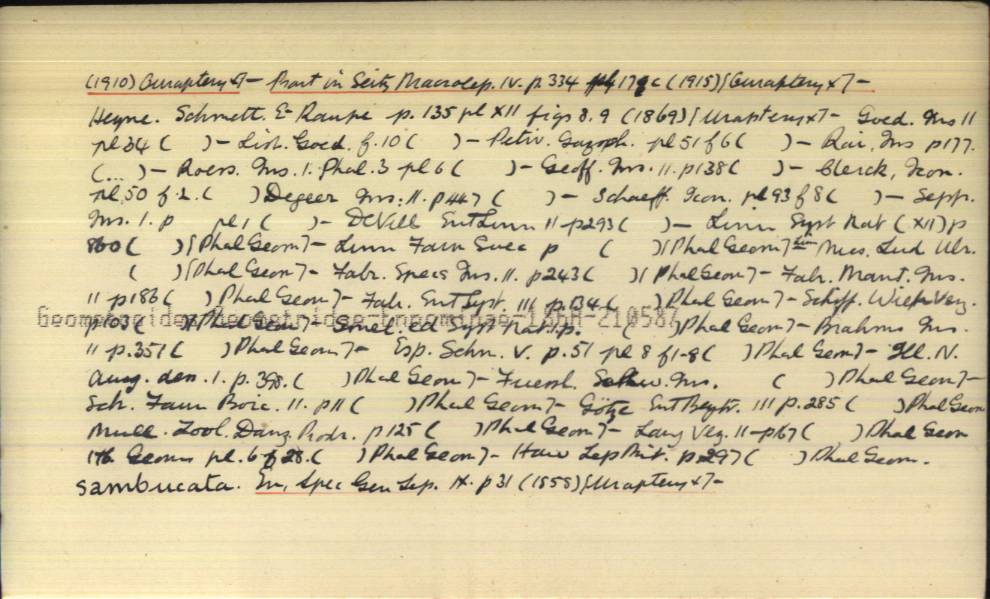 (1910) Ouraptery x] — Prout in Seitz Macrolep. IV. p. 334 pl 17 c (1915) [Ouraptery x] —
Heyne. Schmett. E- Raupe p. 135 pl XII figs 8. 9 (1869) [Urapteryx] — Goed. Ins II
pl 34 ( ) — List. Goed. f. 10 ( ) — Petiv. Gazoph. pl 51 f 6 ( ) — Rai, Ins p 177.
(... ) — Roes. Ins. 1. Phal. 3 pl 6 ( ) — Geoff. Ins. II. p 138 ( ) — Clerck, Icon.
pl, 50 f. 2. ( ) Degeer Ins: II. p 447 ( ) — Schaeff. Icon. pl 93 f 8 ( ) — Sepp.
Ins. 1. p pl 1 ( ) — DeVill Ent Linn II - p 293 ( ) — Linn Syst Nat (XII) p
860 ( ) [Phal Geom] — Linn Faun Suec p ( ) [Phal Geom] Linn Mus. Lud Ulr.
( ) [Phal Geom] — Fabr. Specs Ins. II. p 243 ( ) [Phal Geom] — Fabr. Mant. Ins.
II p 186 ( ) Phal Geom] — Fab. Ent Syst. III p 134 ( ) Phal Geom] — Schiff. Wien Verz.
p 103 ( ) [Phal Geom] — Gmel. ed Syst Nat. 1. p. ( ) Phal Geom] — Brahms Ins.
Geometroidea-Geometridae-Ennominae-
II p. 351 ( ) Phal Geom] — Esp. Schm. V. p. 51 pl 8 f 1-8 ( ) Phal Geom] — Ill. N.
Ausg. den. 1. p. 398. ( ) Phal Geom] — Fuessl. Schw. Ins. ( ) Phal Geom] —
Sch. Faun Boic. II. p 11 ( ) Phal Geom] — Götze Ent Beytr. III p. 285 ( ) Phal Geom
Mull. Zool. Dan. Prodr. p 125 ( ) Phal Geom] — Lang Verz. II - p 167 ( ) Phal Geom
Hb Geoms pl. 6 f 28. ( ) Phal Geom] — Haw Lep Brit. p 297 ( ) Phal Geom.
sambucata. Gn, Spec Gen Lep. IX. p 31 (1858) [Urapteryx] —